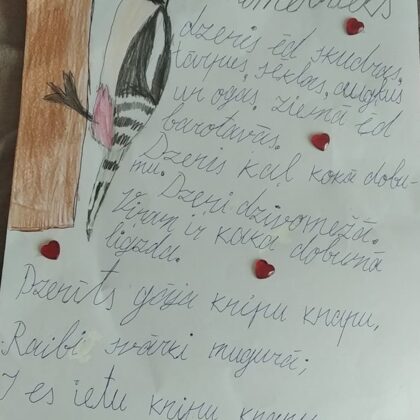 dzenis ēd skudras,
tārpus, sēklas, augļus
un ogas. Ziemā ēd
barotavās.
Dzenis kaļ kokā dobu-
mu. Dzeni dzīvo mežā.
Viņu ir koka dobumā
ligzda.
Dzenīts gāja knipu knapu,
Raibi svārki mugurā;
I es ietu knipu knapu